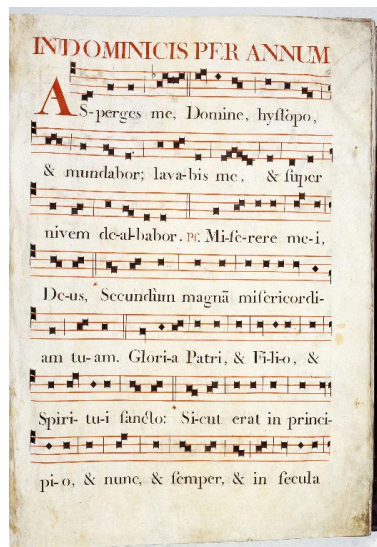 IN DOMINICIS PER ANNUM
AS-perges me, Domine, hyſſopo,
& mundabor; lava-bis me, & ſuper
nivem de-al-babor. Pſ. Mi-ſe-rere me-i,
De-us, Secundùm magnā miſericordi-
am tu-am. Glori-a Patri, & Fi-li-o, &
Spiri-tu-i ſancto: Si-cut erat in princi-
pi-o, & nunc, & ſemper, & in ſecula